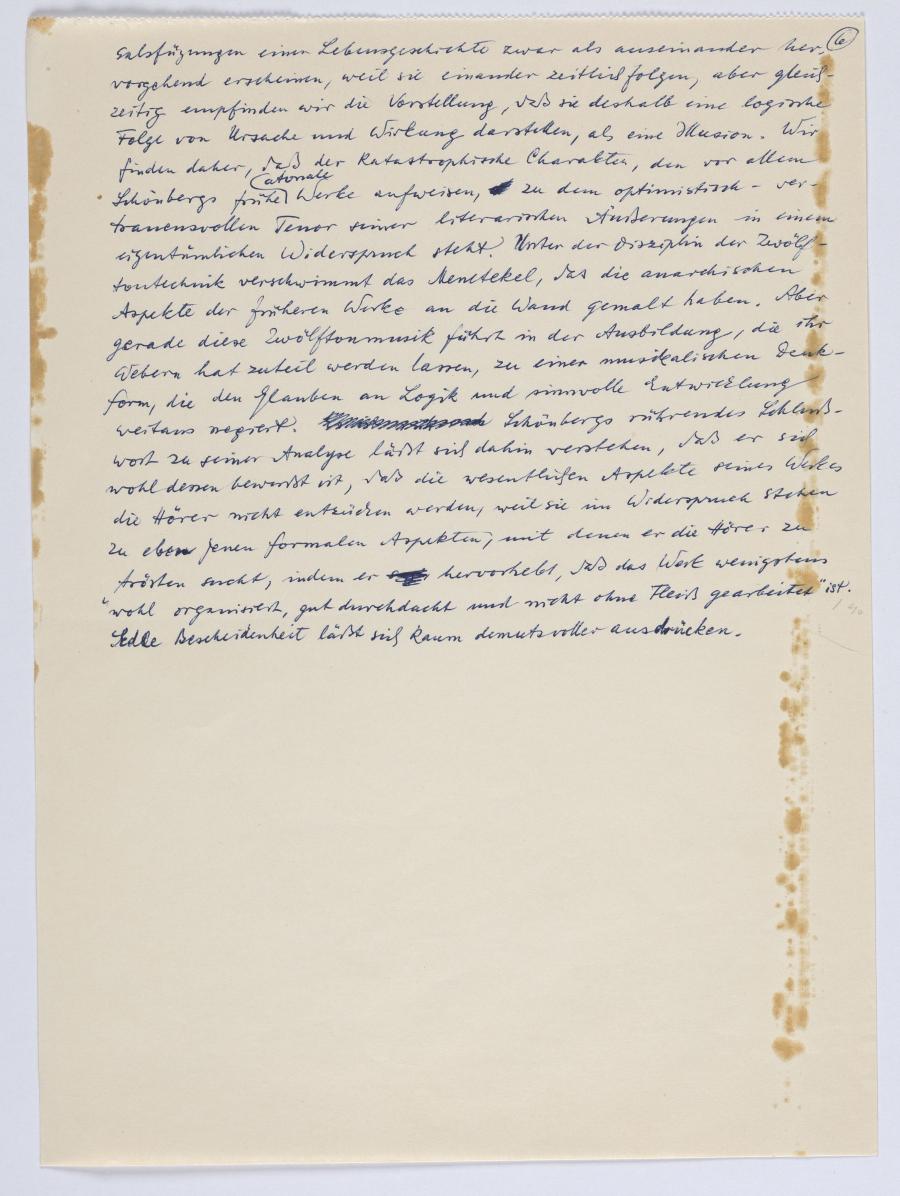 6
salsfügungen einer Lebensgeschichte zwar als auseinander her-
vorgehend erscheinen, weil sie einander zeitlich folgen, aber gleich-
zeitig empfinden wir die Vorstellung, daß sie deshalb eine logische
Folge von Ursache und Wirkung darstellen, als eine Illusion. Wir
finden daher, daß der katastrophische Charakter, den vor allem
atonale
Schönbergs frühe Werke aufweisen, zu dem optimistisch-ver-
trauensvollen Tenor seiner literarischen Äußerungen in einem
eigentümlichen Widerspruch steht. Unter der Disziplin der Zwölf-
tontechnik verschwimmt das Menetekel, das die anarchischen
Aspekte der früheren Werke an die Wand gemalt haben. Aber
gerade diese Zwölftonmusik führt in der Ausbildung, die ihr
Webern hat zuteil werden lassen, zu einer musikalischen Denk-
form, die den Glauben an Logik und sinnvolle Entwicklung
weitaus negiert. Schönbergs rührendes Schluß-
wort zu seiner Analyse läßt sich dahin verstehen, daß er sich
wohl dessen bewußt ist, daß die wesentlichen Aspekte seines Werkes
die Hörer nicht entzücken werden, weil sie im Widerspruch stehen
zu eben jenen formalen Aspekten, mit denen er die Hörer zu
trösten sucht, indem er hervorhebt, daß das Werk wenigstens
"wohl organisiert, gut durchdacht und nicht ohne Fleiß gearbeitet" ist.
Edle Bescheidenheit läßt sich kaum demutsvoller ausdrücken.